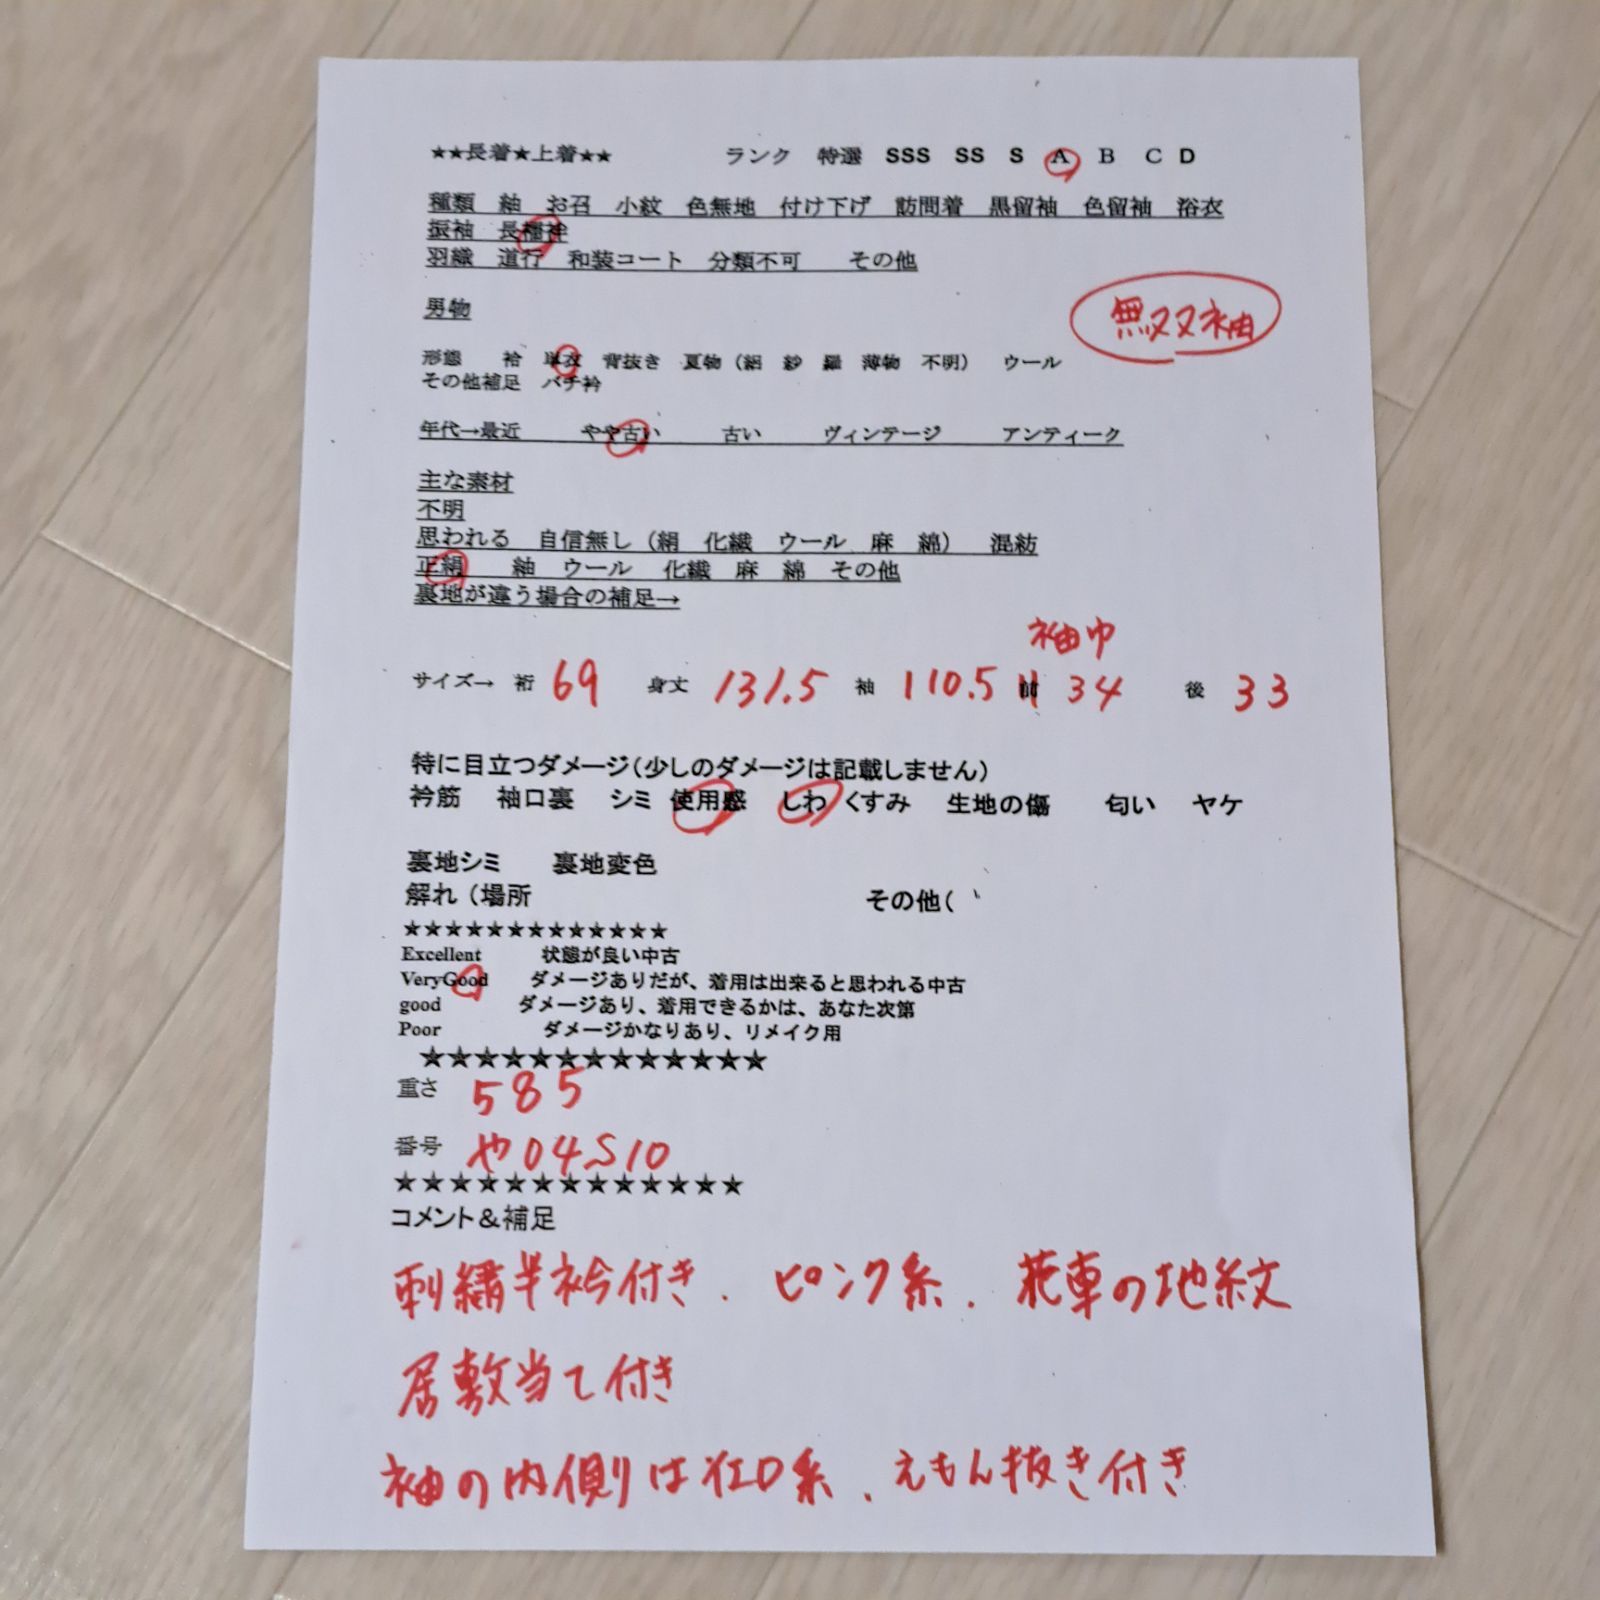 ★★長着★上着★★ ランク 特選 SSS SS S A B C D
種類 紬 お召 小紋 色無地 付け下げ 訪問着 黒留袖 色留袖 浴衣
振袖 長襦袢
羽織 道行 和装コート 分類不可 その他
男物
無双袖
形態 袷 単衣 背抜き 夏物（絽 紗 羅 薄物 不明） ウール
その他補足 バチ衿
年代→最近 やや古い 古い ヴィンテージ アンティーク
主な素材
不明
思われる 自信無し（絹 化繊 ウール 麻 綿） 混紡
正絹 紬 ウール 化繊 麻 綿 その他
裏地が違う場合の補足→
袖巾
サイズ→ 裄 69 身丈 131.5 袖 110.5 前 34 後 33
特に目立つダメージ（少しのダメージは記載しません）
衿筋 袖口裏 シミ 使用感 しわ くすみ 生地の傷 匂い ヤケ
裏地シミ 裏地変色
解れ（場所 その他（
★★★★★★★★★★★★★
Excellent 状態が良い中古
VeryGood ダメージありだが、着用は出来ると思われる中古
good ダメージあり、着用できるかは、あなた次第
Poor ダメージかなりあり、リメイク用
★★★★★★★★★★★★★
重さ 585
番号 や04S10
★★★★★★★★★★★★★
コメント＆補足
刺繍半衿付き. ピンク系. 花車の地紋
居敷当て付き
袖の内側は 系. えもん抜き付き